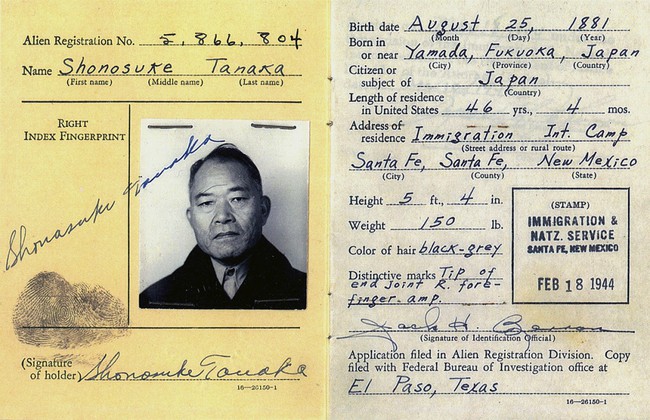 Alien Registration No. 5, 866, 804
Name Shonosuke Tanaka
(First name) (Middle name) (Last name)
RIGHT
INDEX FINGERPRINT
Shonosuke Tanaka
(Signature
of holder) Shonosuke Tanaka
16—26150-1
Birth date August 25, 1881
(Month (Day) (Year)
Born in
or near Yamada, Fukuoka, Japan
(City) (Province) (Country)
Citizen or
subject of Japan
(Country)
Length of residence
in United States 46 yrs., 4 mos.
Address of
residence Immigration Int. Camp
(Street address or rural route)
Santa Fe, Santa Fe, New Mexico
(City) (County) (State)
Height 5 ft., 4 in.
Weight 150 lb.
Color of hair black-grey
Distinctive marks Tip of
end joint R. fore-
finger amp.
(STAMP)
IMMIGRATION &
NATZ. SERVICE
SANTA FE, NEW MEXICO
FEB 18 1944
Jack H.
(Signature of Identification Official)
Application filed in Alien Registration Division. Copy
filed with Federal Bureau of Investigation office at
El Paso, Texas
16—26150-1